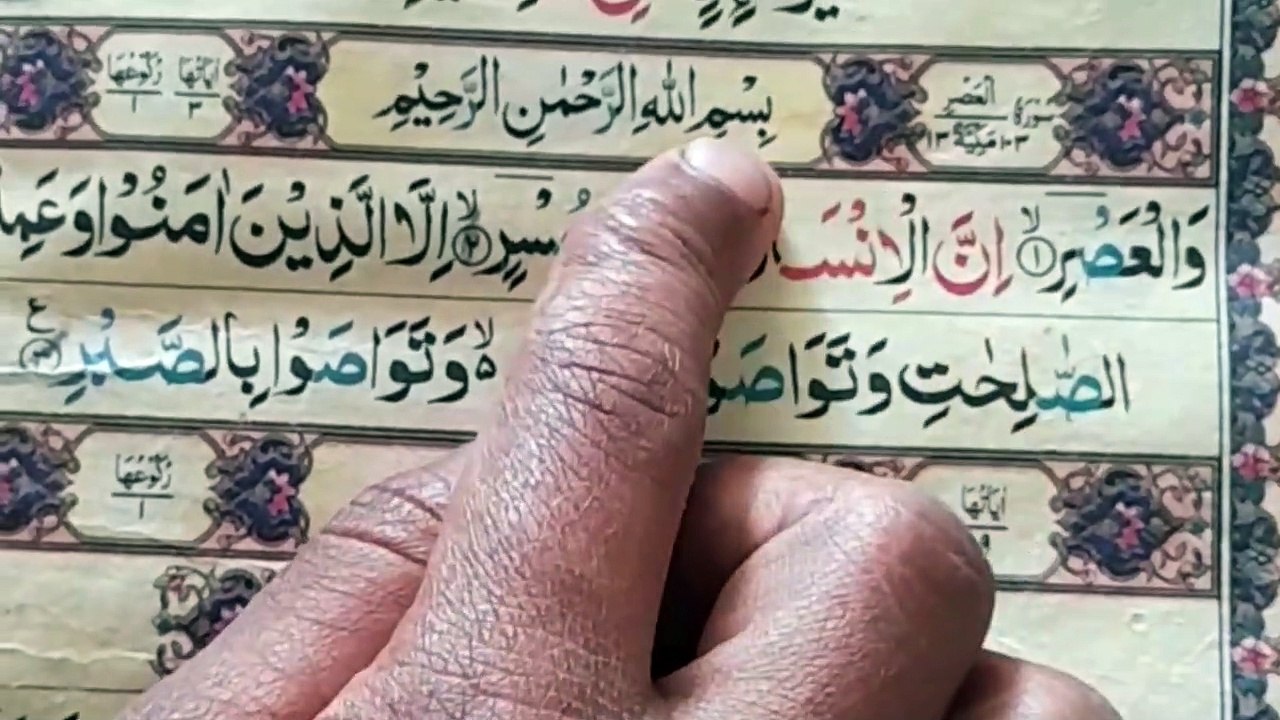 سُوْرَةُ الْعَصْرِ ١٠٣ مَكِّيَّةٌ ١٣
بِسْمِ اللهِ الرَّحْمٰنِ الرَّحِيْمِ
اٰيَاتُهَا ٣ رُكُوْعُهَا ١
وَالْعَصْرِۙ ١ اِنَّ الْاِنْسَا سْرٍۙ ٢ اِلَّا الَّذِيْنَ اٰمَنُوْا وَعَمِلُ
الصّٰلِحٰتِ وَتَوَاصَوْ ەۙ وَتَوَاصَوْا بِالصَّبْرِ ٣ ع
اٰيَاتُهَا ٩ رُكُوْعُهَا ١